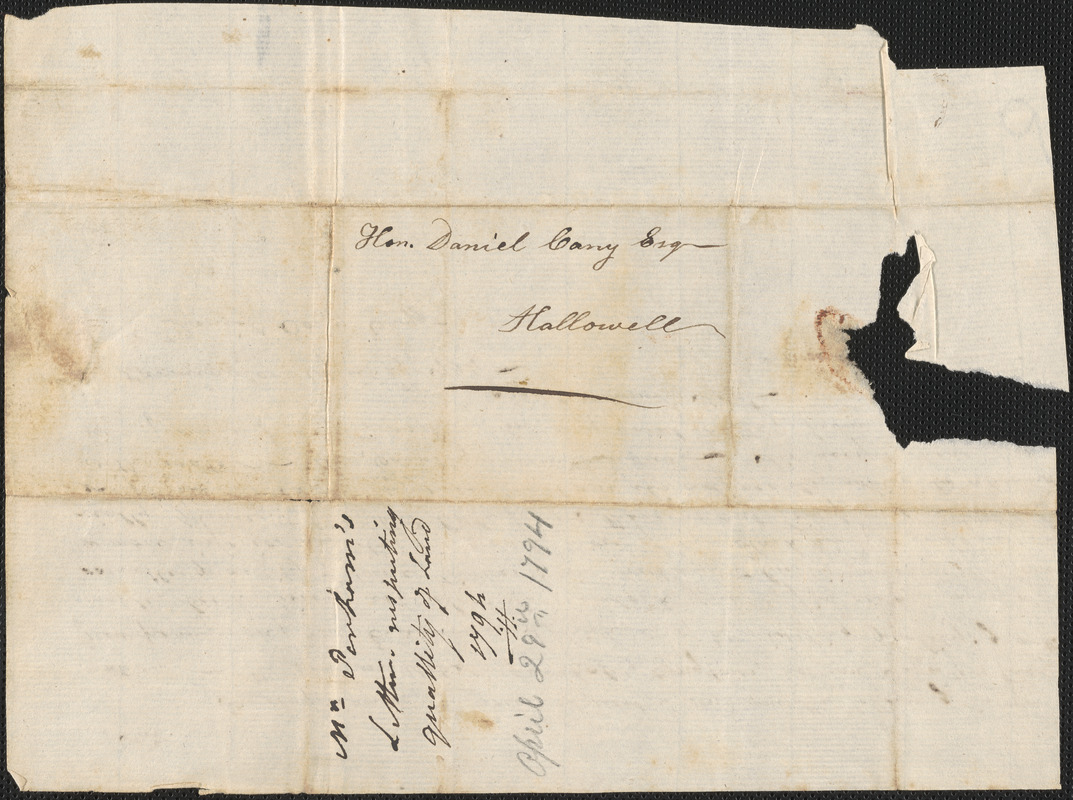 Hon. Daniel Cony Esq
Hallowell
Mr. Parkam's
Letter respecting
quallity of Land
1794
April 28th 1794